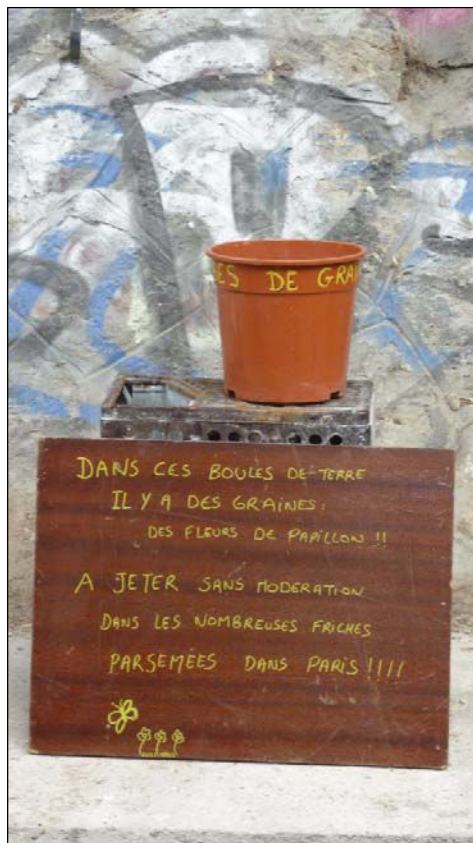 DE
DANS CES BOULES DE TERRE
IL Y A DES GRAINES.
DES FLEURS DE PAPILLON !!
A JETER SANS MODERATION
DANS LES NOMBREUSES FRICHES
PARSEMÉES DANS PARIS !!!!